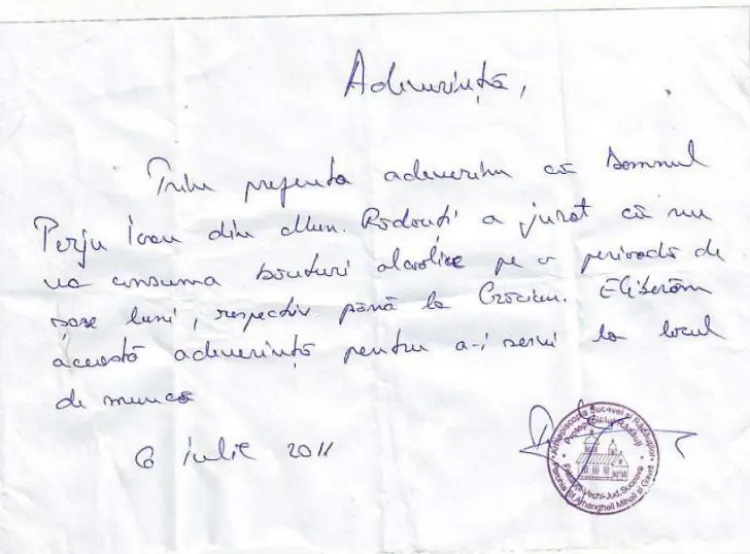 Adeverință,
Prin prezenta adeverim că Domnul
Perju Ioan din Mun. Rădăuți a jurat că nu
va consuma băuturi alcolice pe o perioadă de
șase luni, respectiv până la Crăciun. Eliberăm
această adeverință pentru a-i servi la locul
de muncă
6 iulie 2011
Arhiepiscopia Sucevei și Rădăuților
Protopopiatul Rădăuți
Vechi-Jud. Suceava
Parohia Sf. Arhangheli Mihail și Gavril